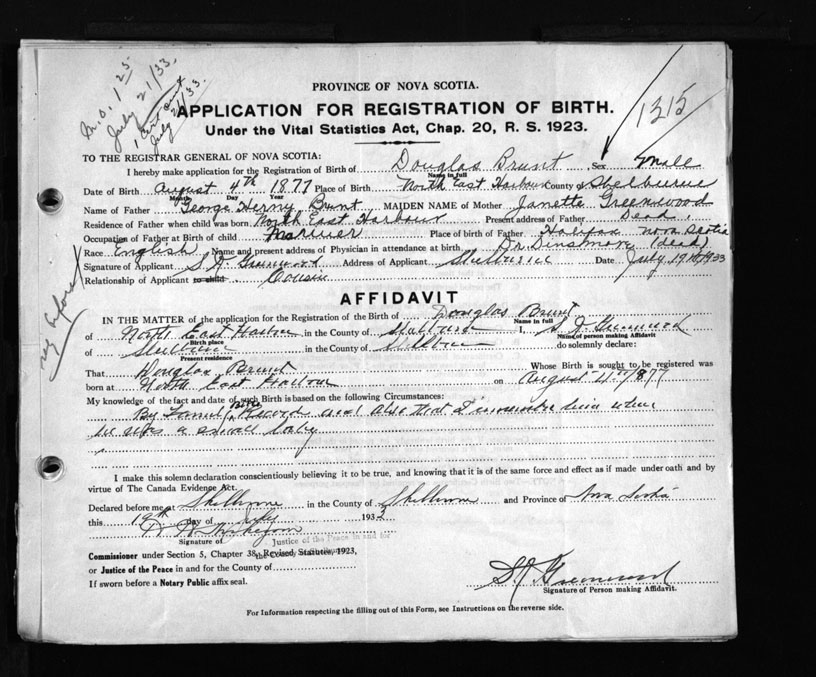 M.O. 1 25
July 21/33.
1 Cert sent
July 26/33.
PROVINCE OF NOVA SCOTIA.
APPLICATION FOR REGISTRATION OF BIRTH.
Under the Vital Statistics Act, Chap. 20, R. S. 1923.
1315
TO THE REGISTRAR GENERAL OF NOVA SCOTIA:
I hereby make application for the Registration of Birth of Douglas Brunt, Sex Male
Name in full
Date of Birth August 4th 1877 Place of Birth North East Harbour County of Shelburne
Month Day Year
Name of Father George Henry Brunt MAIDEN NAME of Mother Janette Greenwood
Residence of Father when child was born North East Harbour Present address of Father Dead.
Occupation of Father at Birth of child Mariner Place of birth of Father Halifax Nova Scotia
Race English Name and present address of Physician in attendance at birth Dr. Dinsmore (dead)
Signature of Applicant S. J. Greenwood Address of Applicant Shelburne Date July 19th, 1933
Relationship of Applicant to child Cousin
AFFIDAVIT
IN THE MATTER of the application for the Registration of the Birth of Douglas Brunt
Name in full
of North East Harbor in the County of Shelburne I, S. J. Greenwood
Birth place Name of person making Affidavit
of Shelburne in the County of Shelburne do solemnly declare:
Present residence
That Douglas Brunt Whose Birth is sought to be registered was
born at North East Harbour on August 4th 1877
My knowledge of the fact and date of such Birth is based on the following Circumstances:
By Family Bible Record and also that I remember him when
he was a small baby
I make this solemn declaration conscientiously believing it to be true, and knowing that it is of the same force and effect as if made under oath and by
virtue of The Canada Evidence Act.
Declared before me at Shelburne in the County of Shelburne and Province of Nova Scotia
this 19th day of July 1933
Signature of Justice of Peace in and for
Commissioner under Section 5, Chapter 38, Revised Statutes, 1923,
or Justice of the Peace in and for the County of
If sworn before a Notary Public affix seal.
S. J. Greenwood
Signature of Person making Affidavit.
For Information respecting the filling out of this Form, see Instructions on the reverse side.